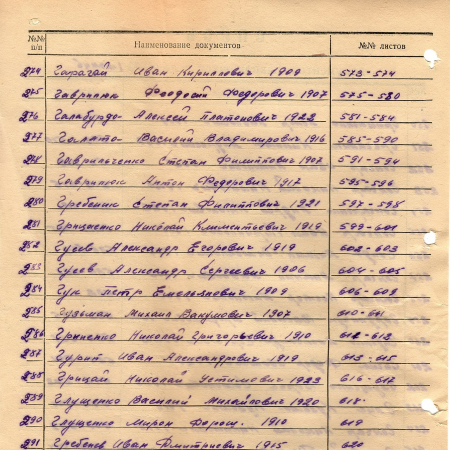 №№ п/п Наименование документов №№ листов
274 Гарагай Иван Кириллович 1909 573-574
275 Гаврилюк Феодосий Федорович 1907 575-580
276 Галабурдо Алексей Платонович 1922 581-584
277 Галата Василий Владимирович 1916 585-590
278 Гаврильченко Степан Филиппович 1907 591-594
279 Гаврилюк Антон Федорович 1917 595-596
280 Гребеник Степан Филиппович 1921 597-598
281 Гриценко Николай Климентьевич 1919 599-601
282 Гусев Александр Егорович 1919 602-603
283 Гусев Александр Сергеевич 1906 604-605
284 Гук Петр Емельянович 1909 606-609
285 Гузьман Михаил Вакулович 1907 610-611
286 Гриненко Николай Григорьевич 1910 612-613
287 Гурит Иван Александрович 1919 613-615
288 Грицай Николай Устимович 1923 616-617
289 Глущенко Василий Михайлович 1920 618
290 Глущенко Мирон 1910 619
291 Гребенев Иван Дмитриевич 1915 620